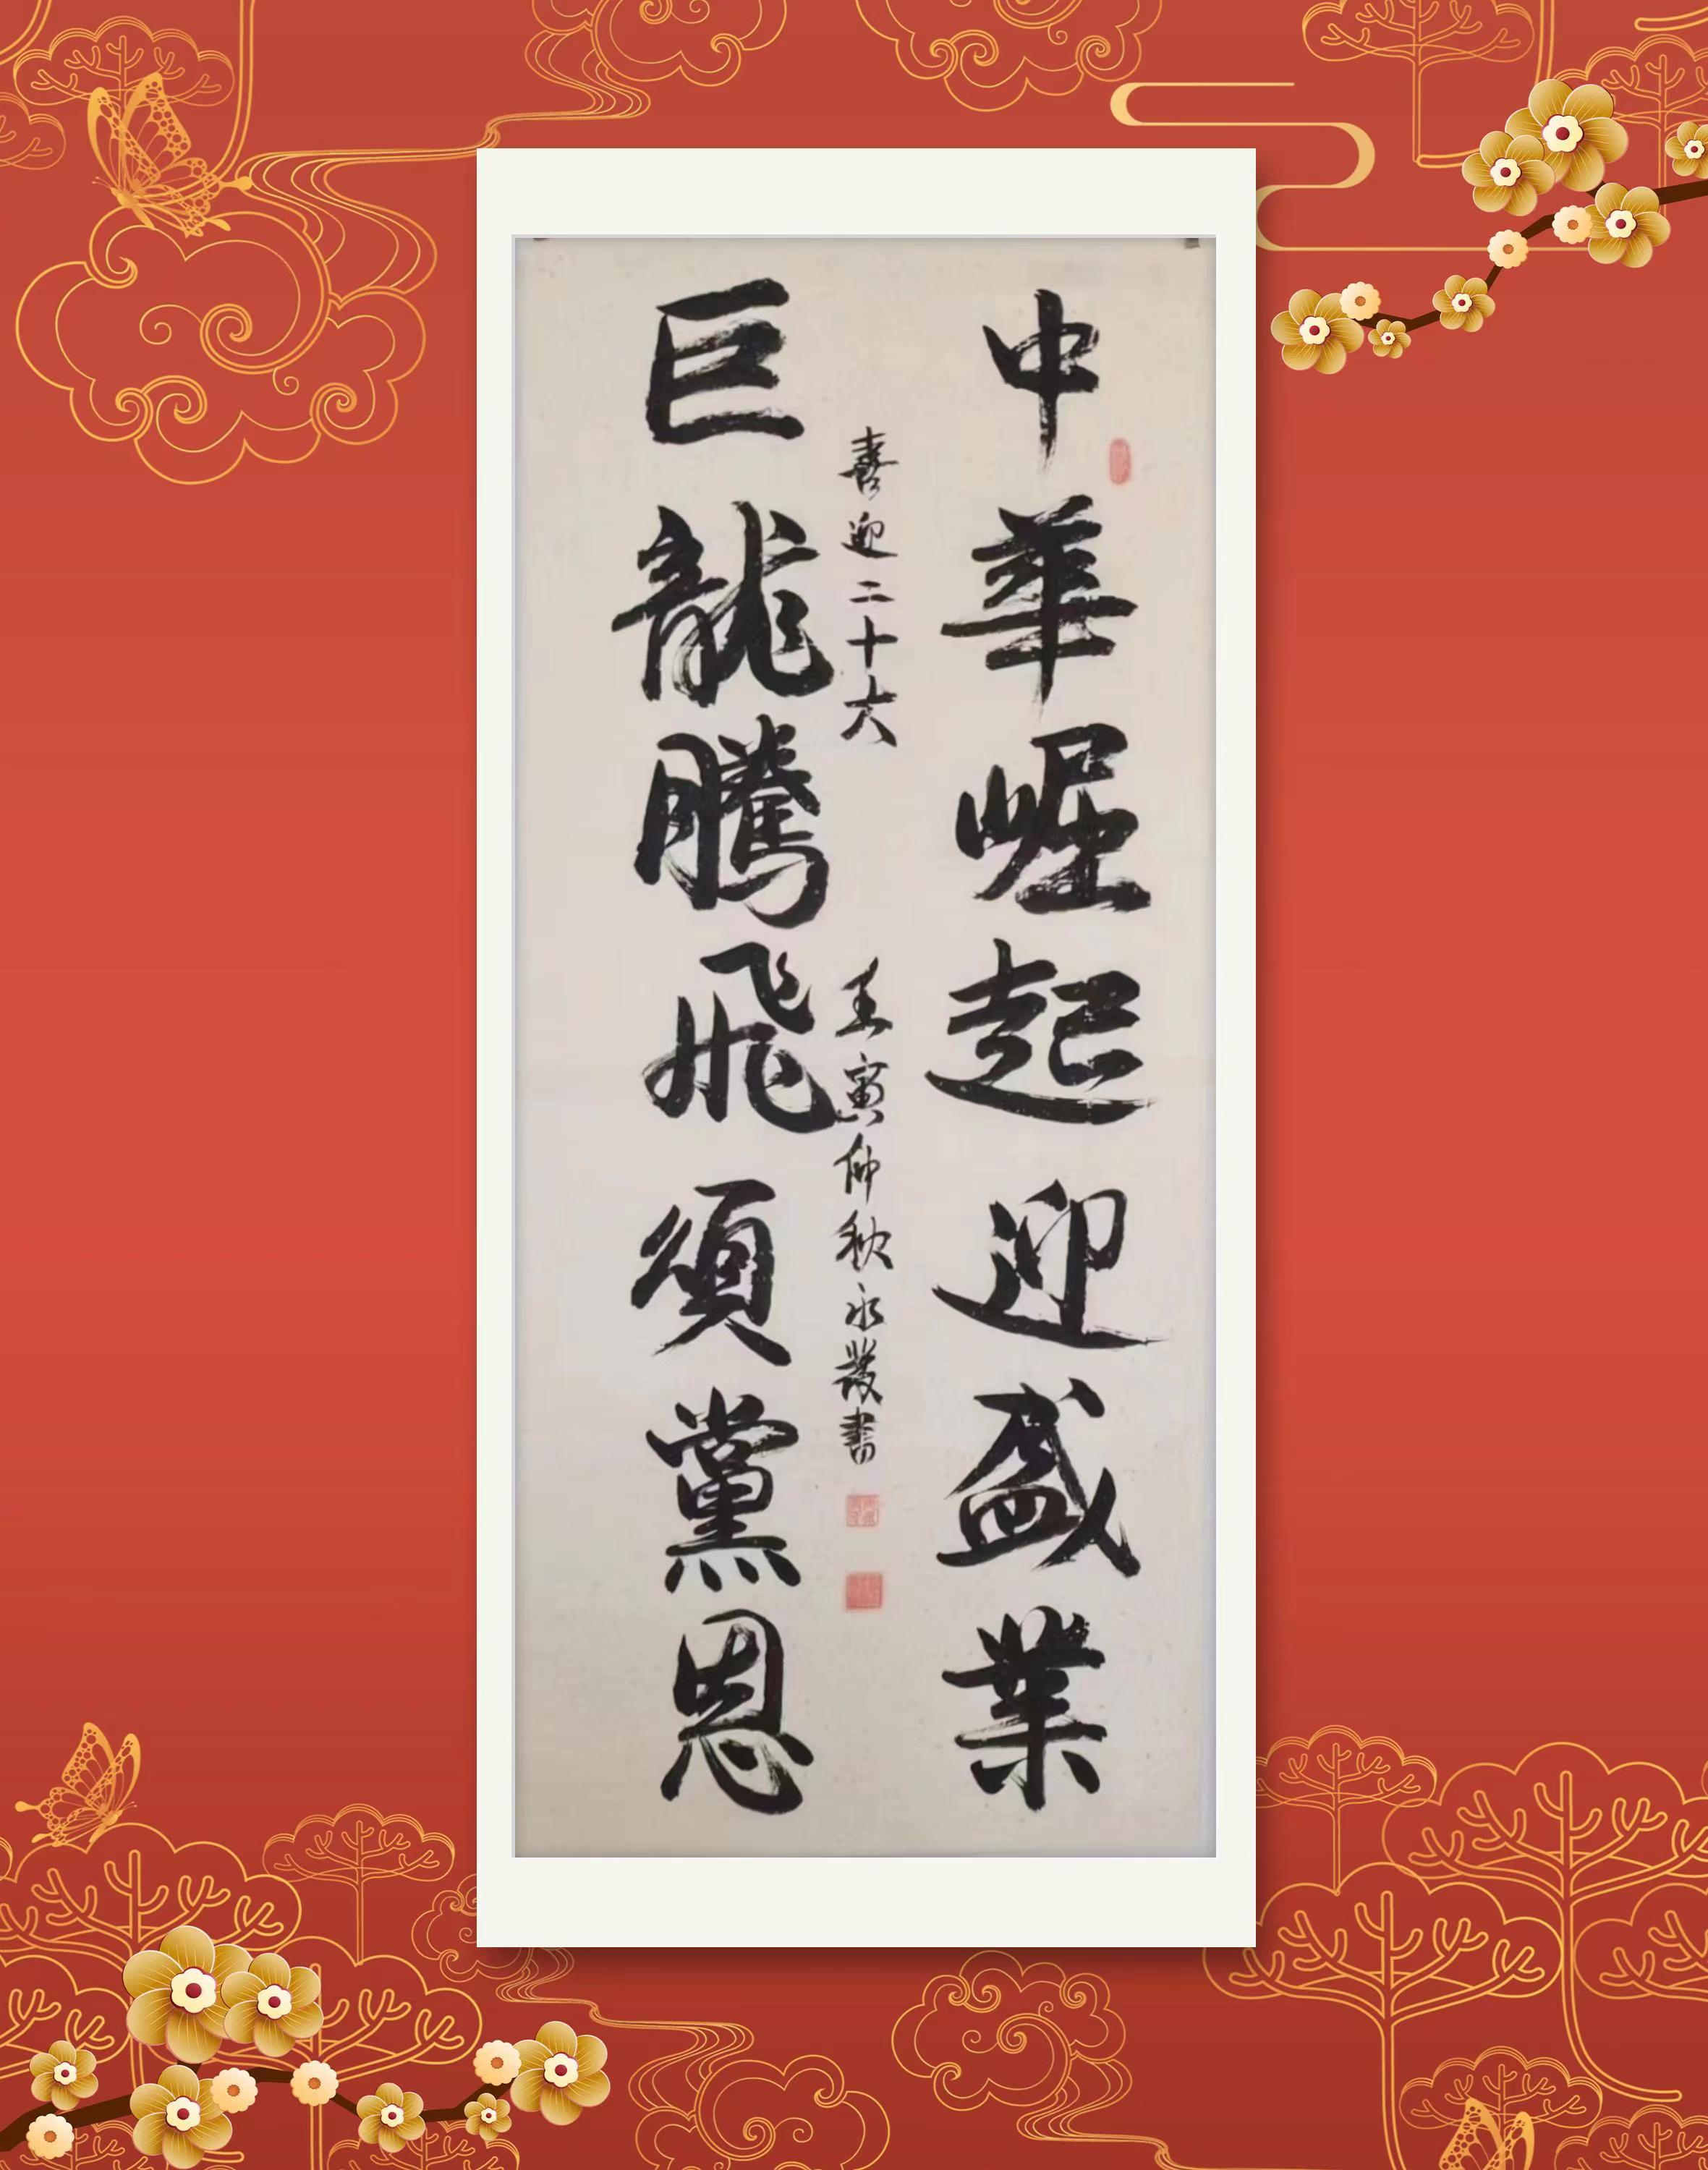 中華崛起迎盛業
巨龍騰飛頌黨恩
喜迎二十大
壬寅仲秋永發書